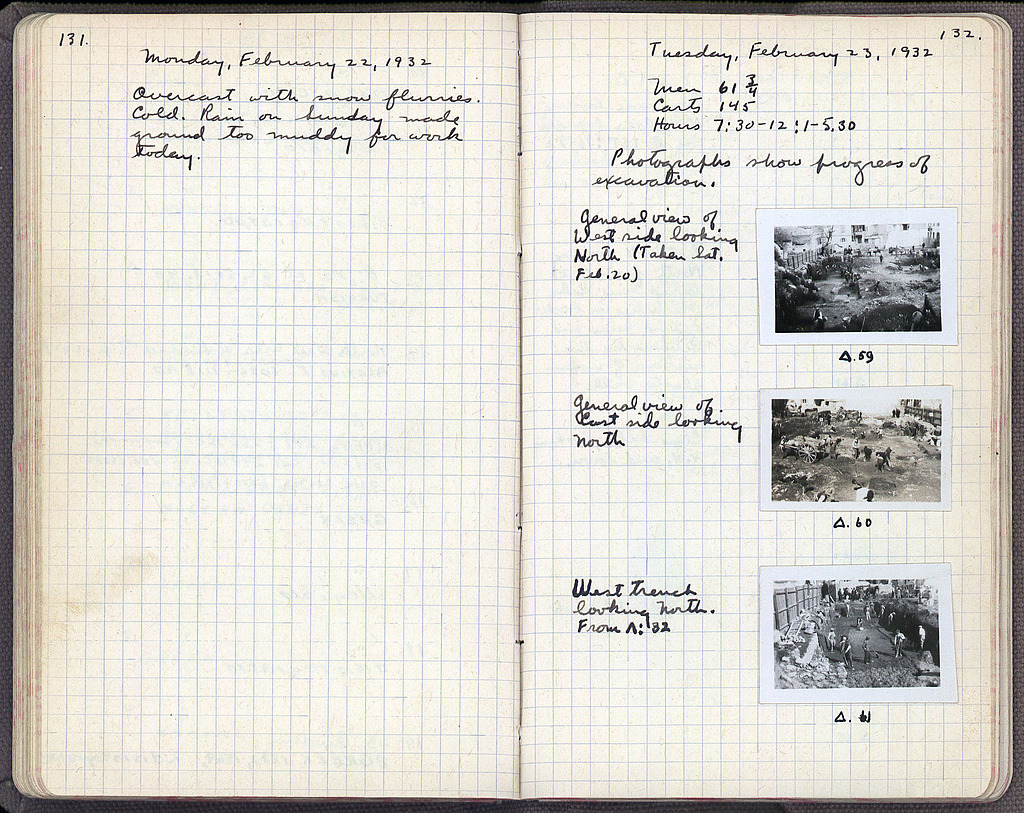 131.
Monday, February 22, 1932
Overcast with snow flurries.
Cold. Rain on Sunday made
ground too muddy for work
today.
132.
Tuesday, February 23, 1932
Men 61 3/4
Carts 145
Hours 7:30-12; 1-5.30
Photographs show progress of
excavation.
General view of
West side looking
North (Taken Sat.
Feb. 20)
Δ.59
General view of
East side looking
North
Δ. 60
West trench
looking North.
From Λ: 32
Δ. 61